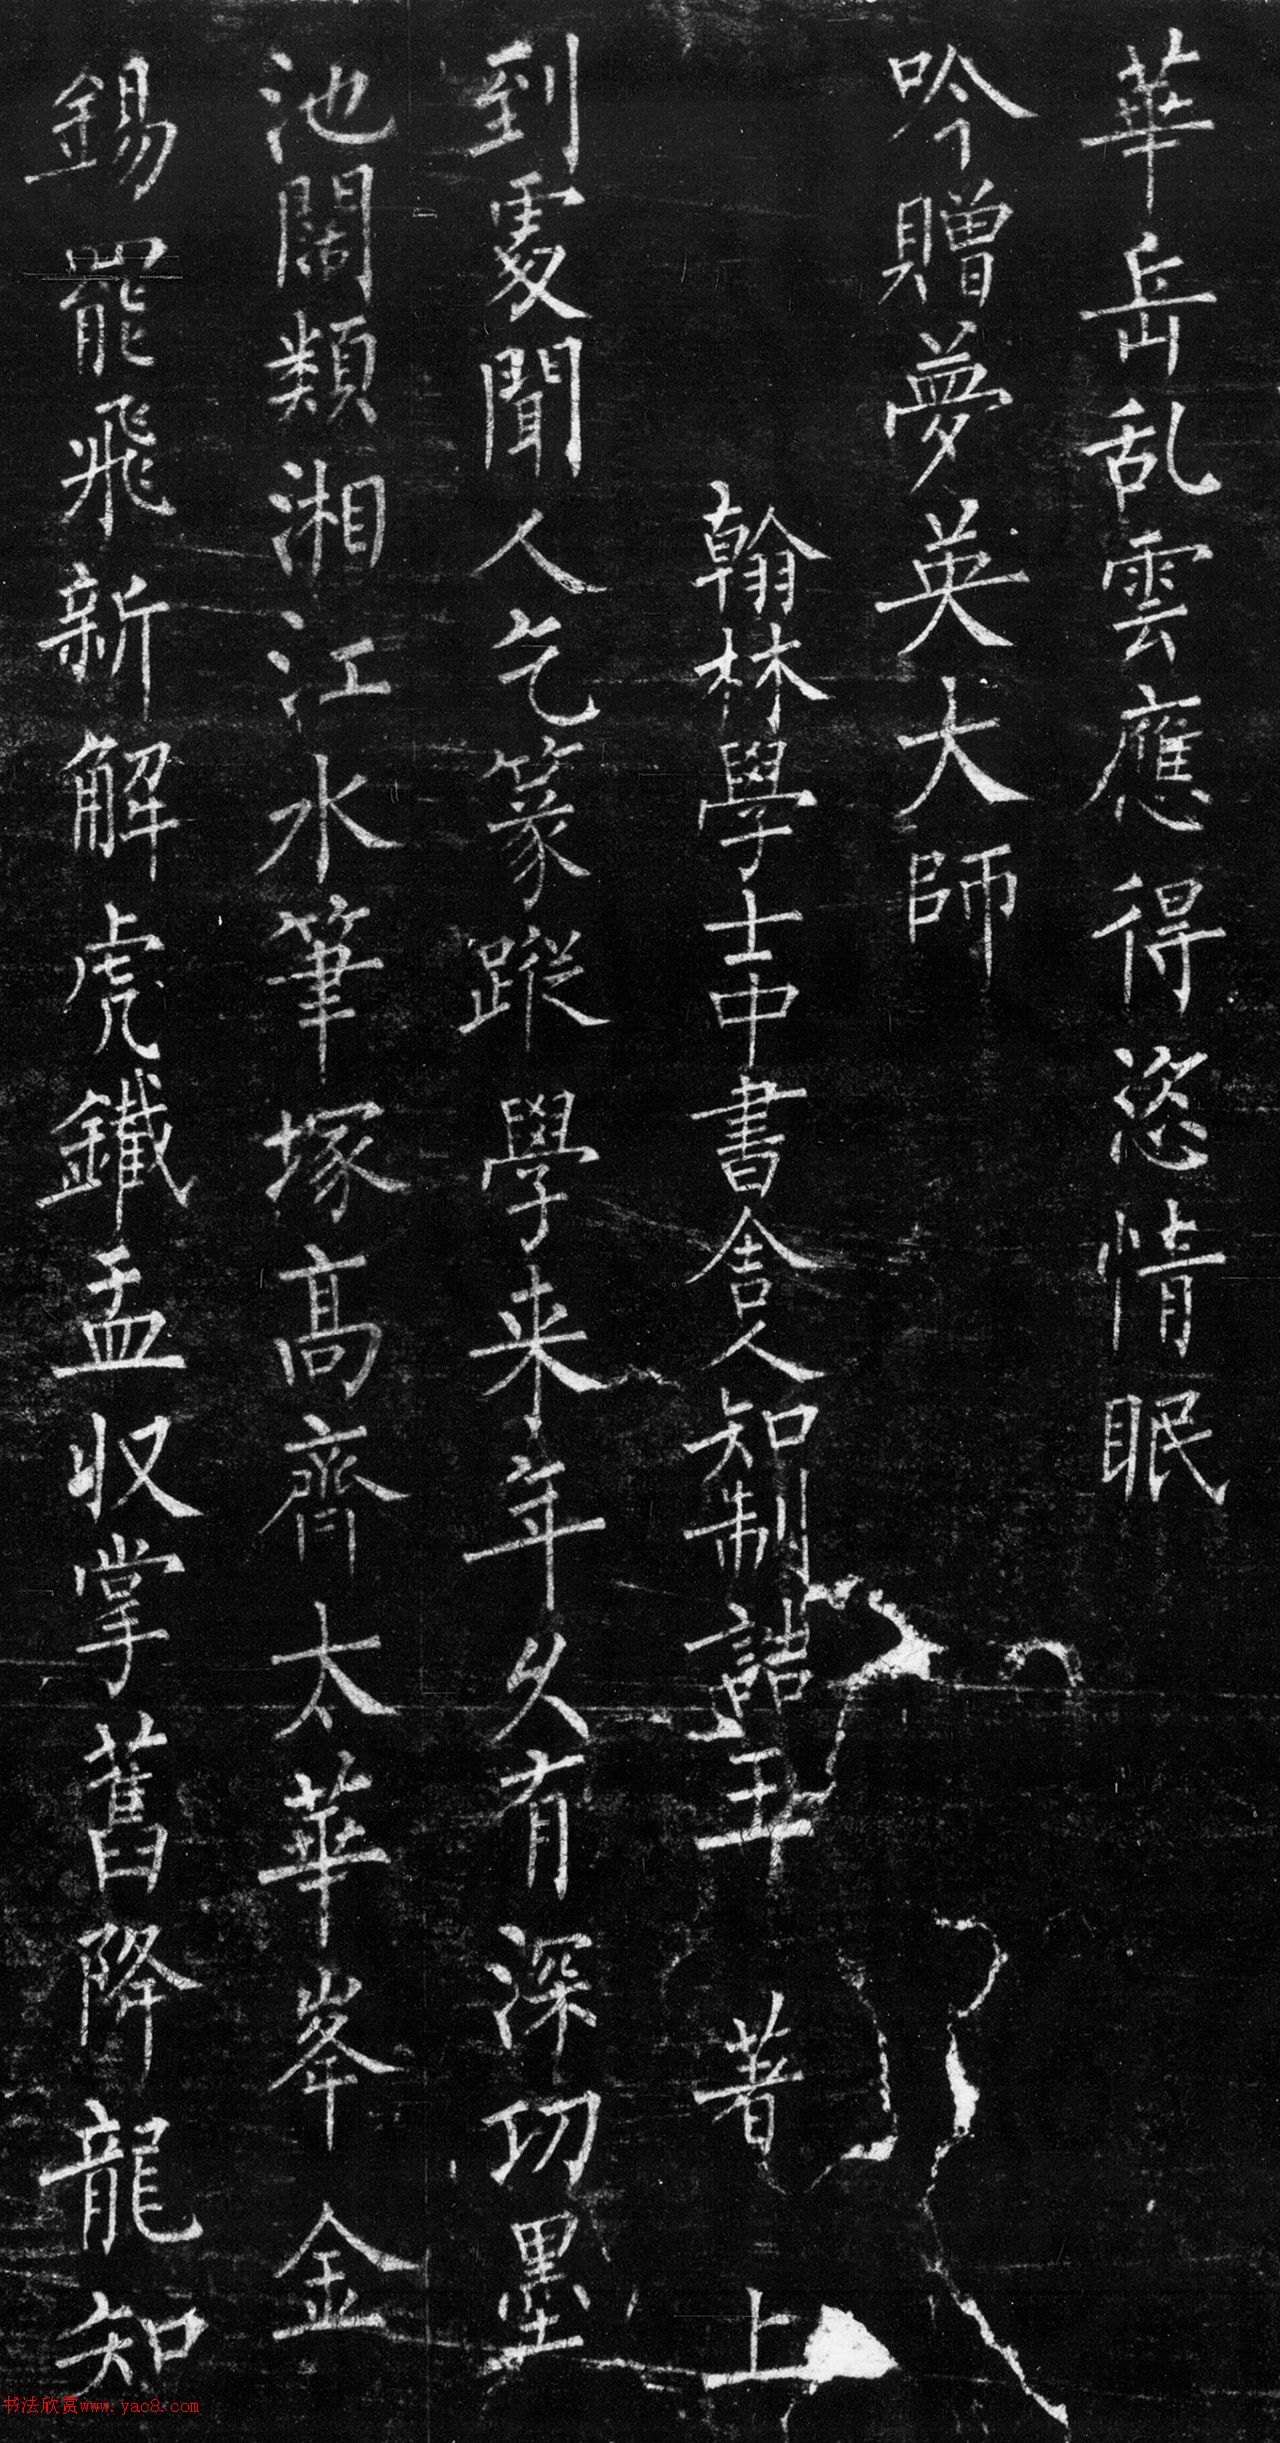 華岳乱雲應得恣情眠
吟贈夢英大師
翰林學士中書舎人知制誥王著上
到處聞人乞篆蹤學来年久有深功墨
池闊類湘江水筆塚高齊太華峯金
錫罷飛新解虎鐵盂収掌舊降龍知
书法欣赏www.yac8.com